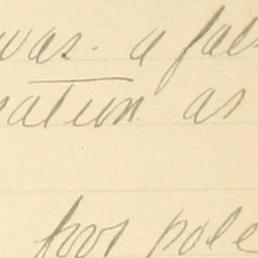 was a fal
ation as
foot pole